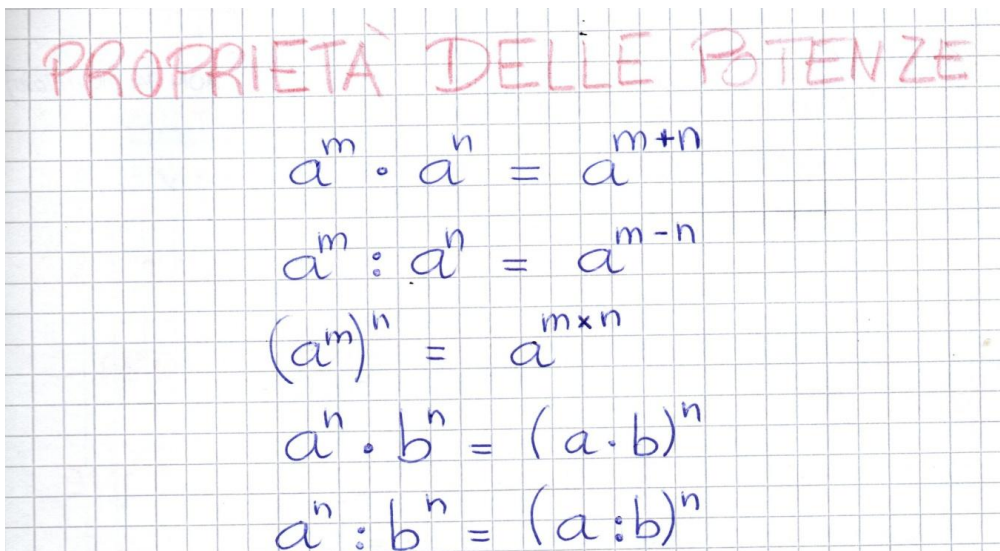 PROPRIETÀ DELLE POTENZE
aᵐ · aⁿ = aᵐ⁺ⁿ
aᵐ : aⁿ = aᵐ⁻ⁿ
(aᵐ)ⁿ = a^{m×n}
aⁿ · bⁿ = (a · b)ⁿ
aⁿ : bⁿ = (a : b)ⁿ